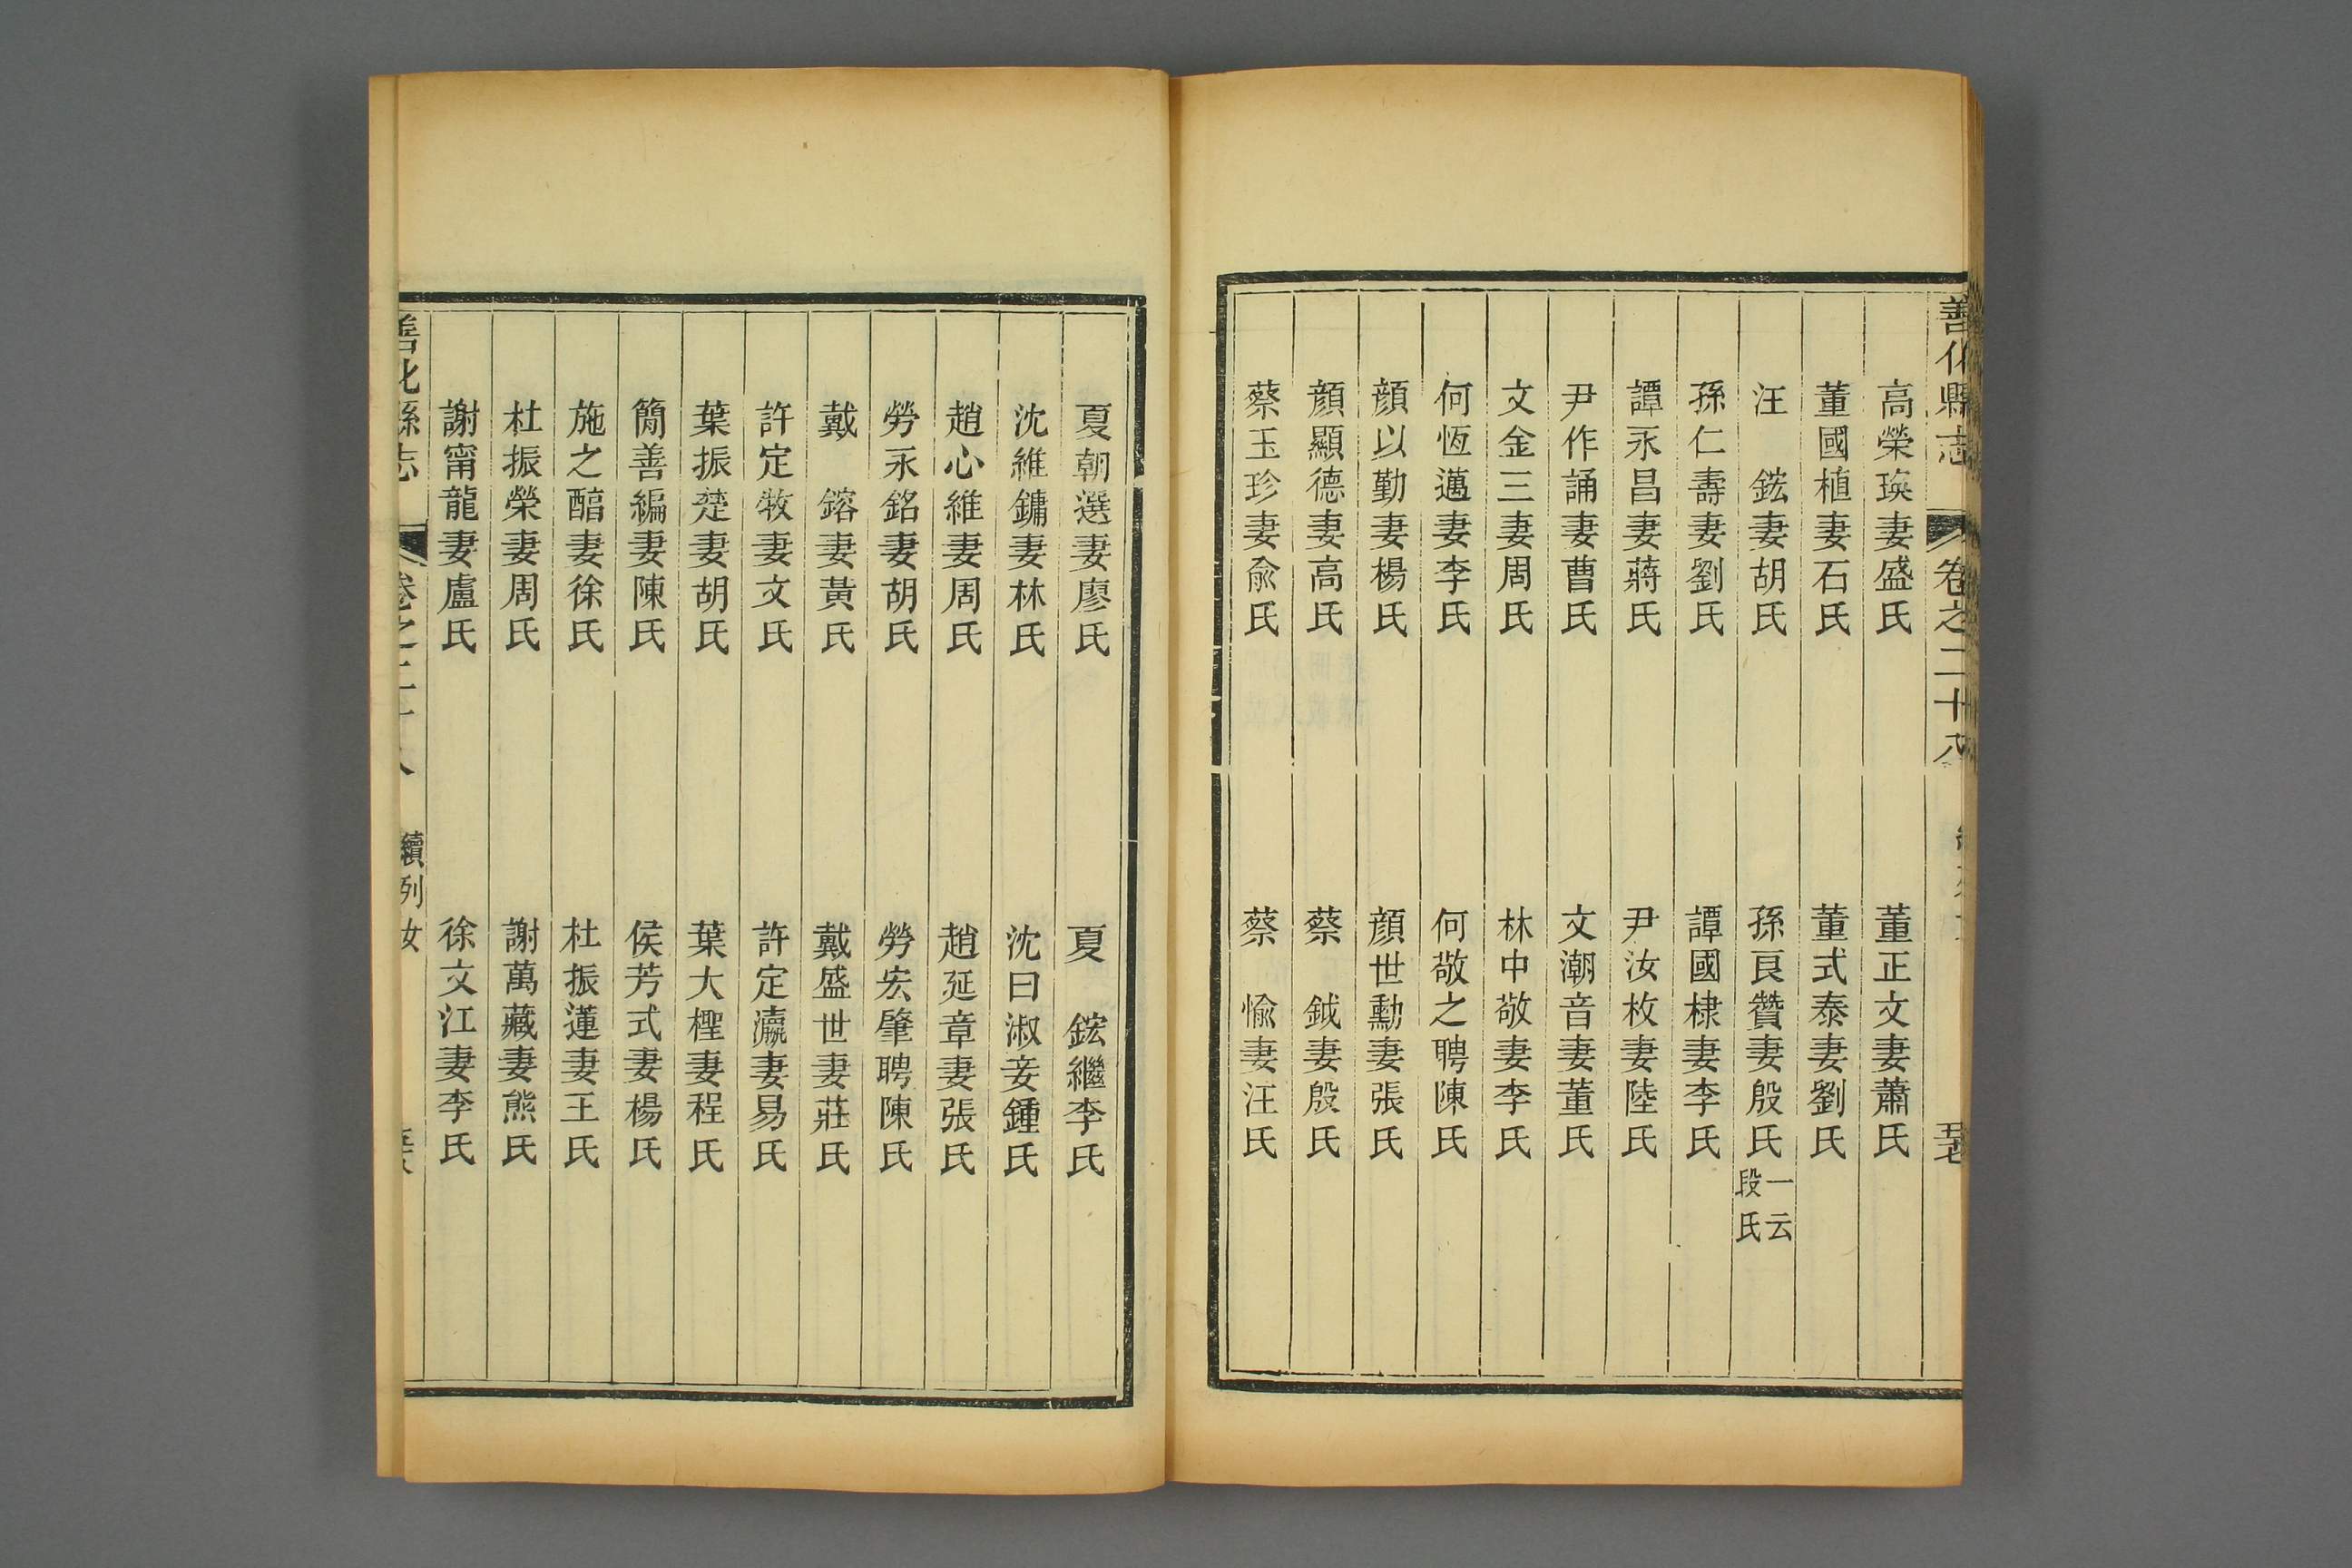 善化縣志 卷之二十八 五十七
高榮瑛妻盛氏 董正文妻蕭氏
董國植妻石氏 董式泰妻劉氏
汪 鋐妻胡氏 孫良贊妻殷氏一云段氏
孫仁壽妻劉氏 譚國棣妻李氏
譚永昌妻蔣氏 尹汝枚妻陸氏
尹作誦妻曹氏 文潮音妻董氏
文金三妻周氏 林中敬妻李氏
何恆邁妻李氏 何敬之聘陳氏
顏以勤妻楊氏 顏世勳妻張氏
顏顯德妻高氏 蔡 鉞妻殷氏
蔡玉珍妻俞氏 蔡 愉妻汪氏
夏朝選妻廖氏 夏 鋐繼李氏
沈維鏞妻林氏 沈曰淑妾鍾氏
趙心維妻周氏 趙延章妻張氏
勞永銘妻胡氏 勞宏肇聘陳氏
戴 鎔妻黃氏 戴盛世妻莊氏
許定牧妻文氏 許定瀛妻易氏
葉振楚妻胡氏 葉大檉妻程氏
簡善編妻陳氏 侯芳式妻楊氏
施之醕妻徐氏 杜振蓮妻王氏
杜振榮妻周氏 謝萬藏妻熊氏
謝甯龍妻盧氏 徐文江妻李氏
善化縣志 卷之二十八 續列女